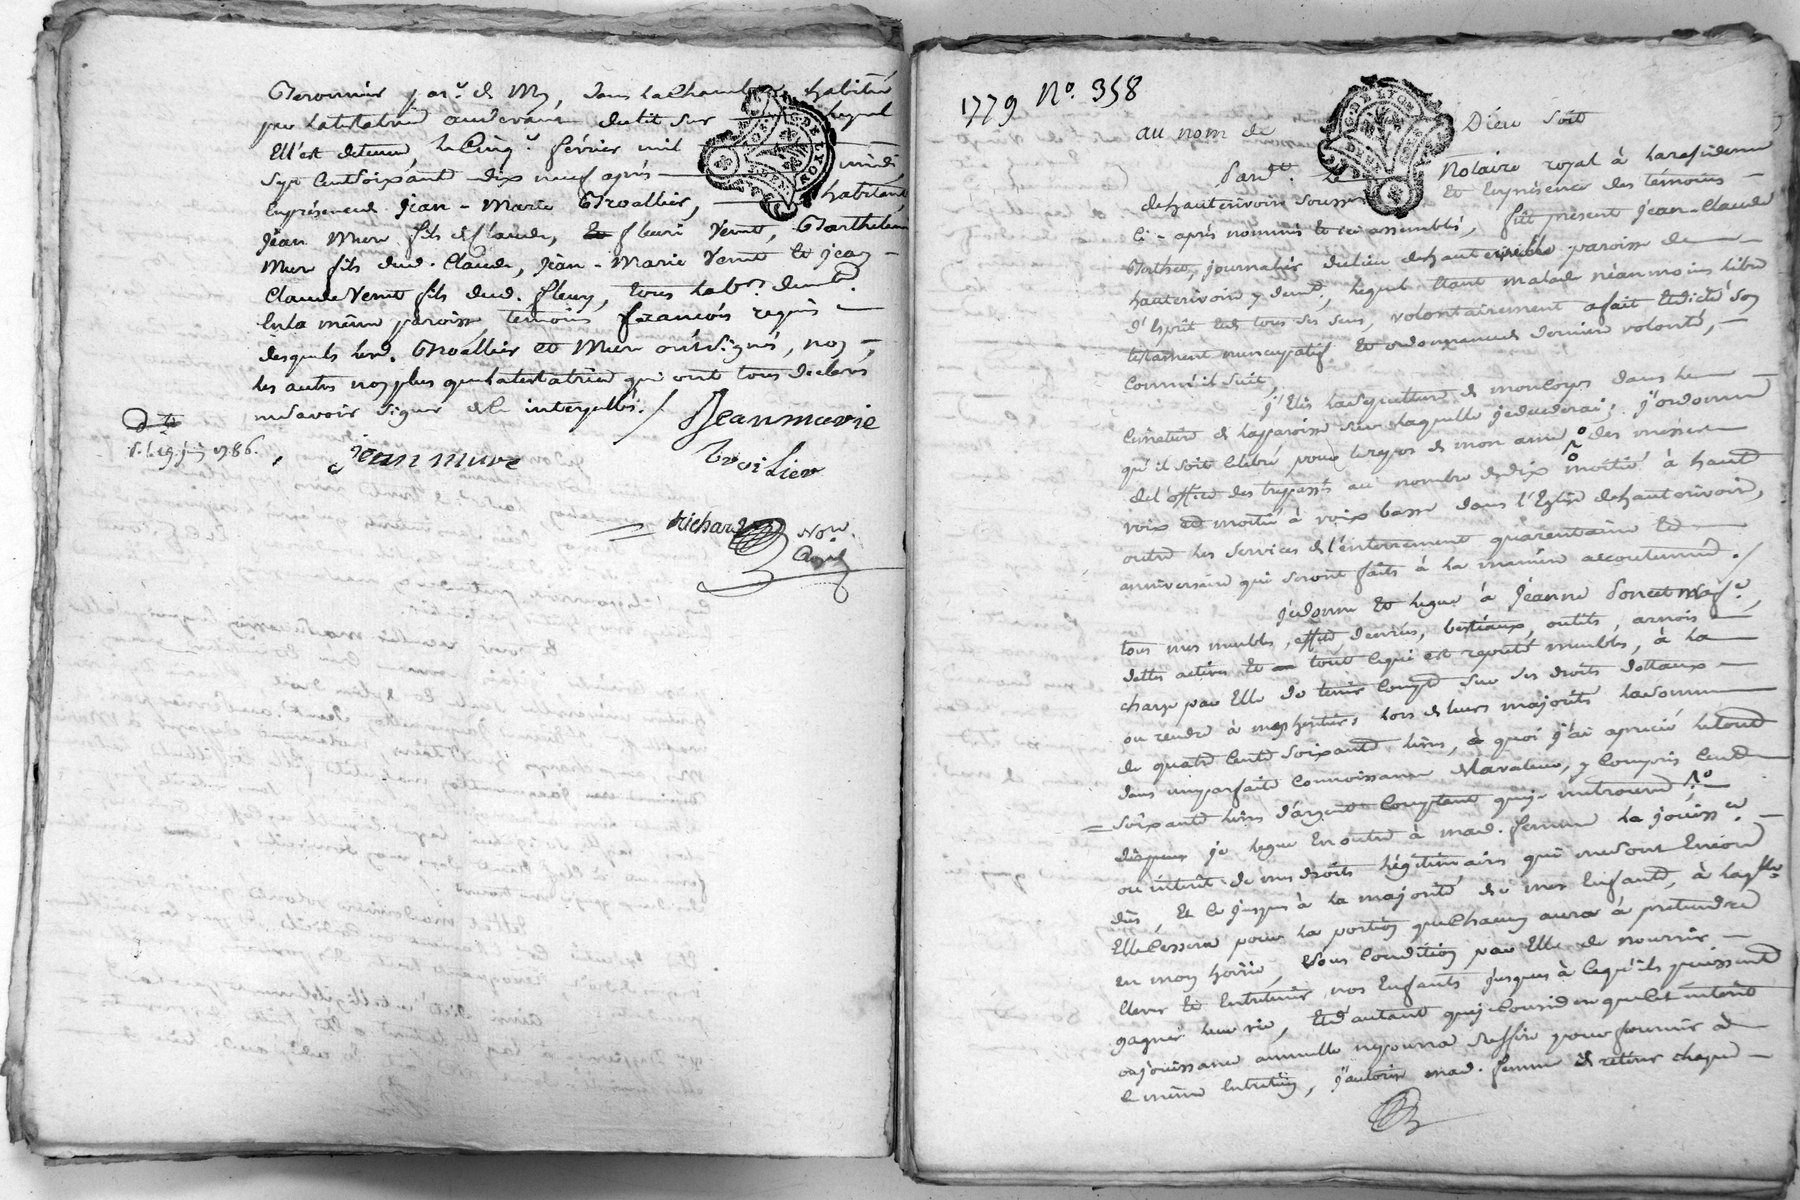 par.e de My, dans la Chambre habitée
par la testatrice au devant du lit sur lequel
Elle est detenue, le Cinq.e février mil
Sept Cent Soixante dix neuf après midi
En présence de Jean-Marie Troallier, habitant
Jean Mure fils de Claude, fleuri Venet, Barthelemi
Mure fils dud. Claude, Jean-Marie Venet et Jean
Claude Venet fils dud. fleury, tous lab.rs dem.t
En la même paroisse temoins francois requis
desquels led. Troallier et Mure ont signés, non
les autres non plus que la testatrice qui ont tous declarés
ne savoir signer de ce interpellés. /
Jean marie
troilier
jean mure
Richard No.re
Royal
1779 N.o 358
au nom de Dieu soit
Pard.t Le Notaire royal à la residence
de hauterivoire soussigné Et En présence des témoins
Ci-après nommés et ici assemblés, fût présent Jean-Claude
journalier du lieu de hauterivoire paroisse de
hauterivoire y dem.t, lequel Etant malade néanmoins libre
d'Esprit Et de tous ses sens, volontairement a fait Et dicté son
testament nuncupatif Et ordonnance de dernière volonté,
Comme il suit,
j'Elis la sepulture de mon Corps dans le
Cimetière de la paroisse sur laquelle je decederai, j'ordonne
qu'il soit Celebré pour le repos de mon ame des messes
de l'office des trepassés au nombre de dix moitié à haute
voix Et moitié à voix basse dans l'Eglise de hauterivoire,
outre les Services de l'enterrement quarentaine Et
anniversaire qui seront faits à la manière accoutumée. /
je donne Et legue à Jeanne Poncet ma f.e,
tous mes meubles, effets, denrées, bestiaux, outils, arnois
dettes actives Et tout ce qui est reputé meubles, à la
charge par Elle de tenir Compte sur ses droits dottaux
ou rendre à mes heritiers lors de leurs majorités la somme
de quatre Cents soixante livres, à quoi j'ai aprecié le tout
dans une parfaite Connoissance de la valeur, y Compris Cent
soixante livres d'argent Comptant que je
je legue En outre à mad. femme la jouiss.ce
ou interêt de mes droits légitimaires qui me sont Encore
dûs, Et Ce jusqu'à la majorité de mes Enfants, à laq.lle
Elle Cessera pour la portion que Chacun aura à pretendre
En mon hoirie, sous Condition par Elle de nourrir
Elever Et Entretenir nos Enfants jusques à Ce qu'ils puissent
gagner leur vie, Et d'autant que je Considere que Cet interêt
ou jouissance annuelle ne pourra suffire pour fournir à
Ce même Entretien, j'autorise mad. femme de retenir chaque